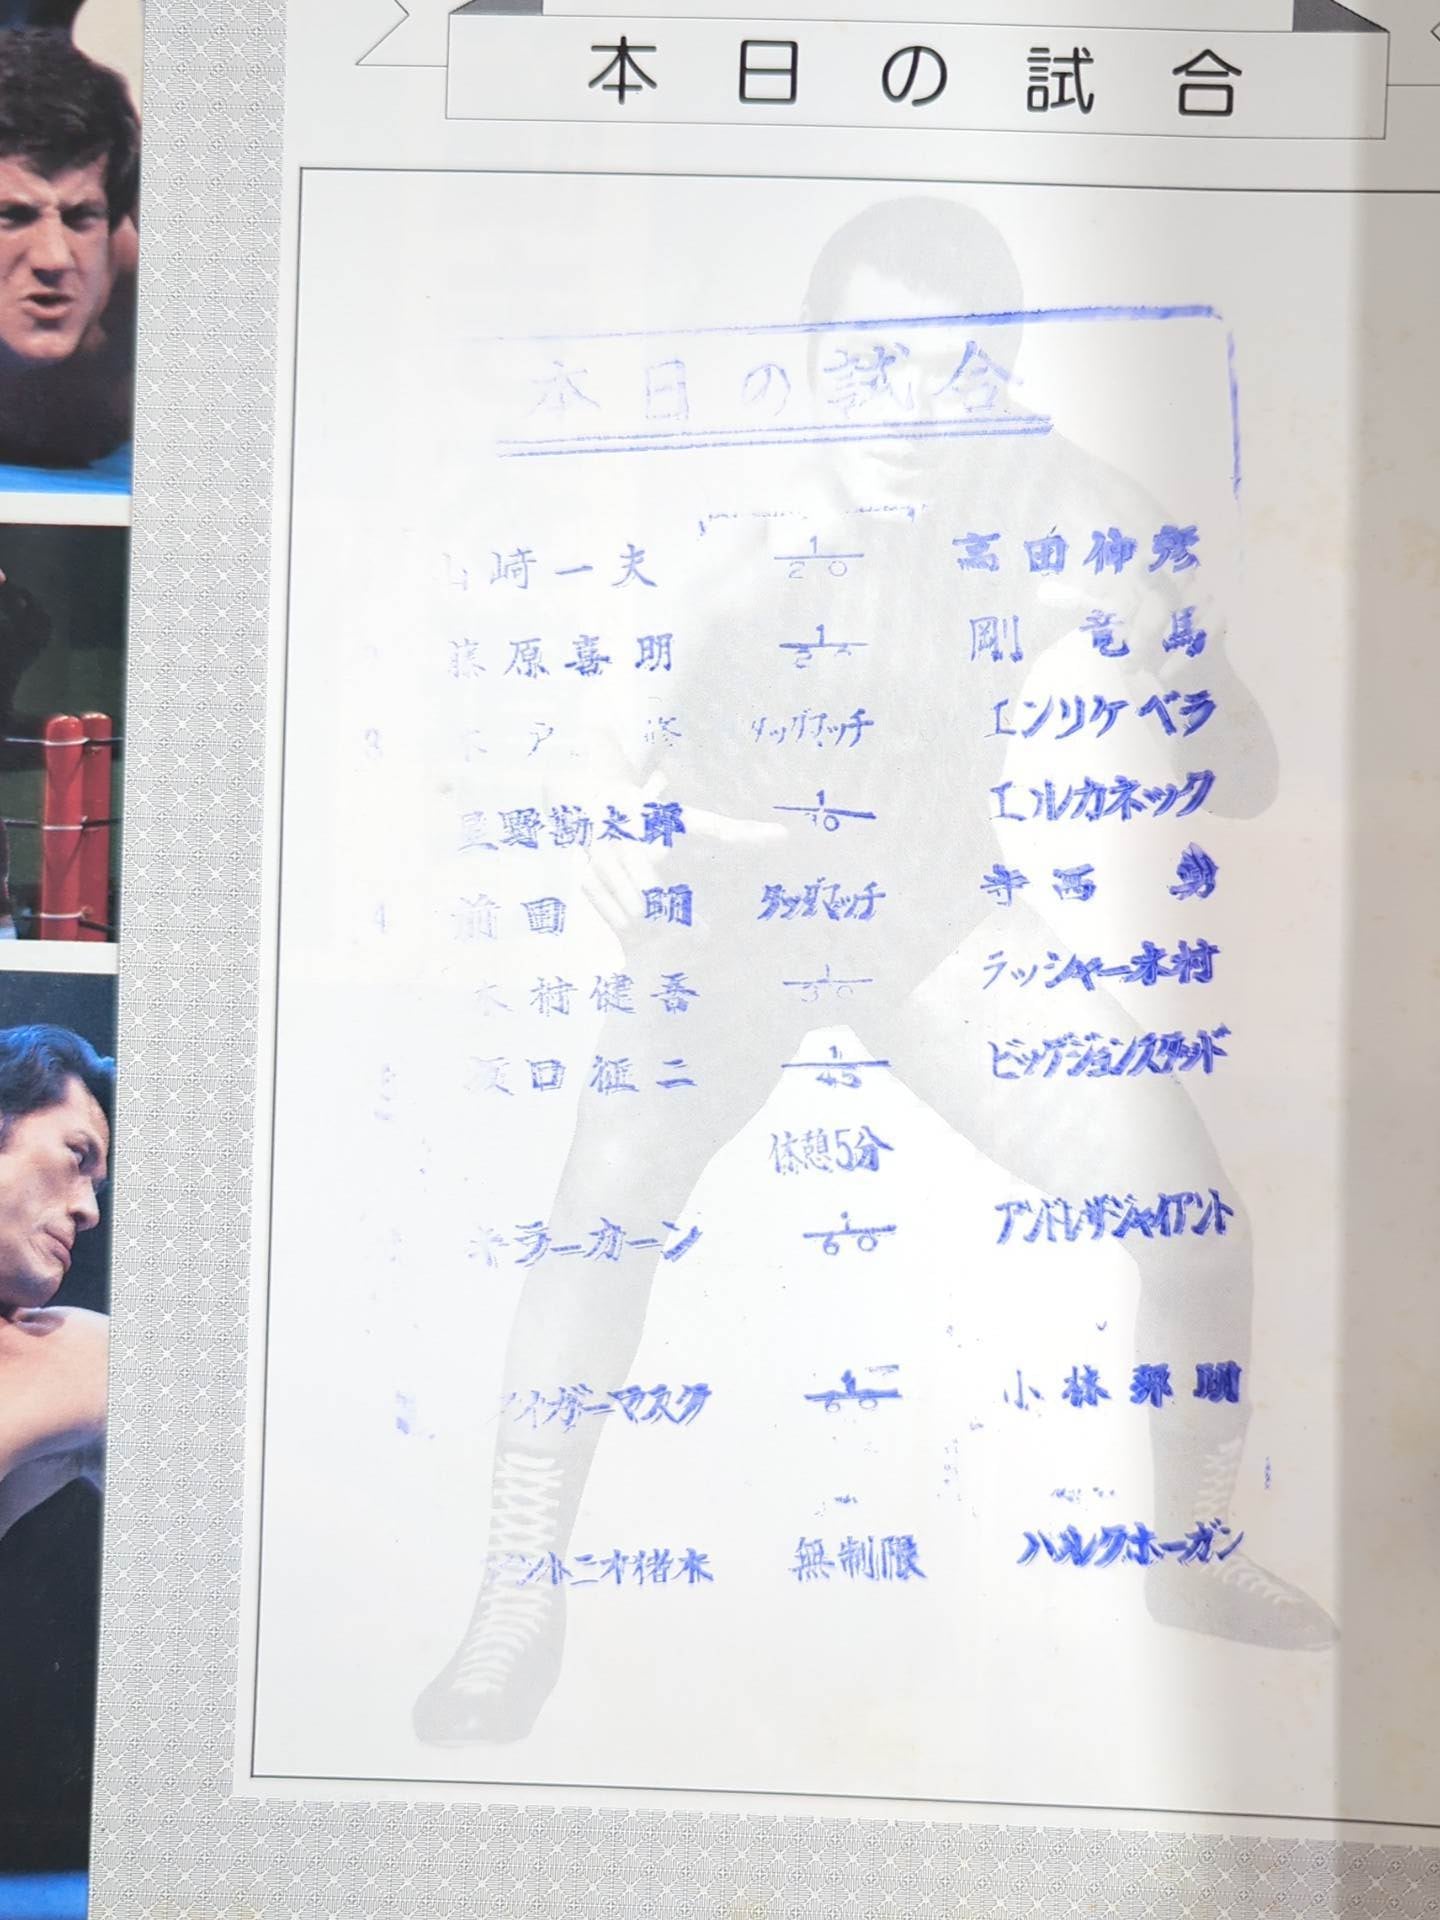 本日の試合
本日の試合
山崎一夫 1/20 高田伸彦
藤原喜明 1/20 剛竜馬
3 木戸修 タッグマッチ エンリケベラ
星野勘太郎 1/30 エルカネック
4 前田明 タッグマッチ 寺西勇
木村健吾 1/30 ラッシャー木村
坂口征二 1/45 ビッグジョンスタッド
休憩5分
キラーカーン 1/60 アンドレザジャイアント
タイガーマスク 1/60 小林邦明
アントニオ猪木 無制限 ハルクホーガン